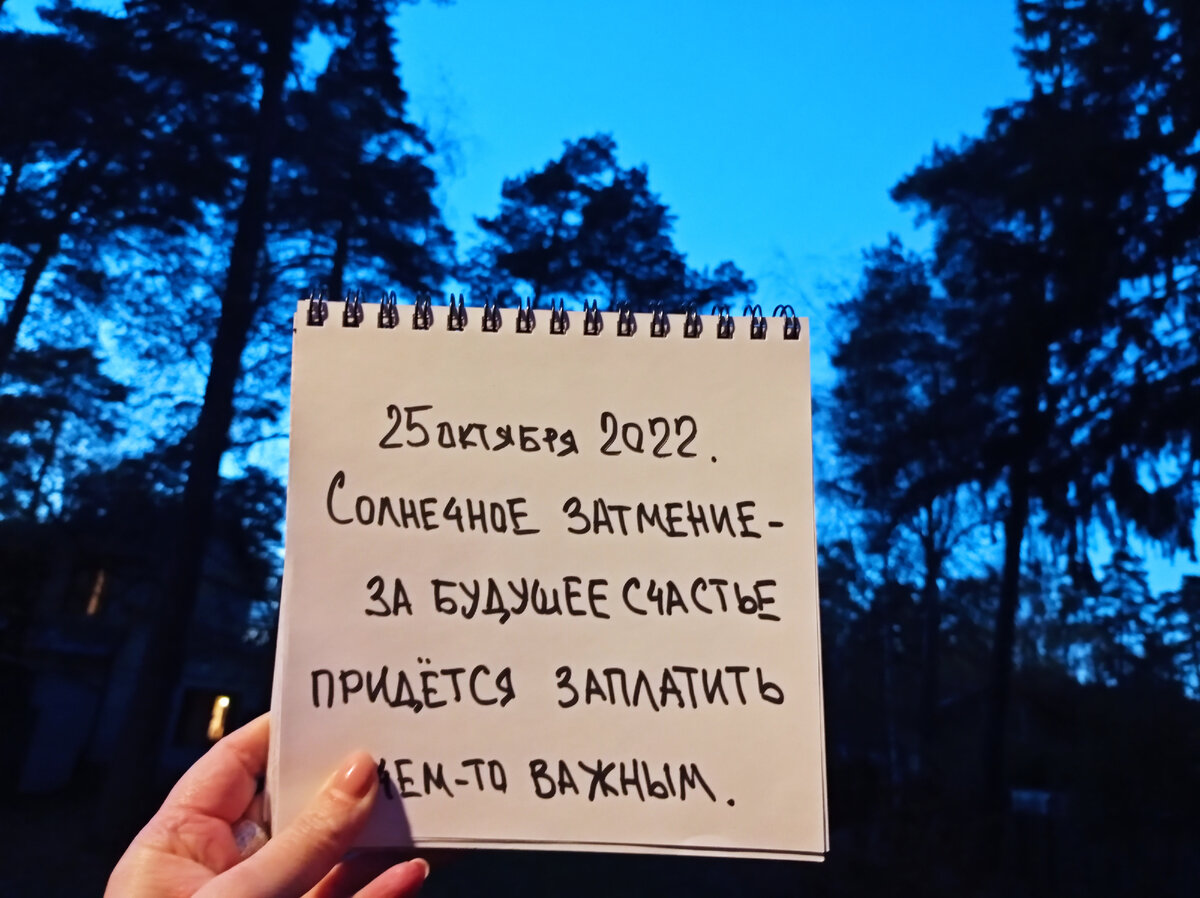 25 октября 2022.
Солнечное затмение-
за будущее счастье
придётся заплатить
чем-то важным.